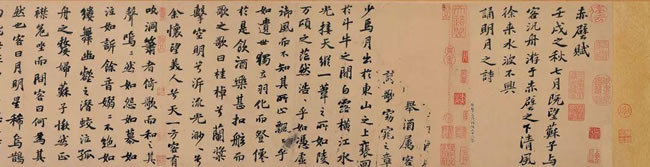 赤壁賦
壬戌之秋七月既望蘇子與
客汎舟游于赤壁之下清風
徐來水波不興
誦明月之詩
舉酒屬客
歌窈窕之章
少焉月出於東山之上裴回
於斗牛之間白露橫江水
光接天縱一葦之所如陵
萬頃之茫然浩〻乎如憑虛
御風而不知其所止飄〻乎
如遺世獨立羽化而登僊
於是飲酒樂甚扣舷而
歌之歌曰桂棹兮蘭槳
擊空明兮泝流光渺〻兮
余懷望美人兮天一方客有
吹洞簫者倚歌而和之其
聲嗚〻然如怨如慕如
泣如訴餘音嫋〻不絕如
縷舞幽壑之潛蛟泣孤
舟之嫠婦蘇子愀然正
襟危坐而問客曰何爲其
然也客曰月明星稀烏鵲